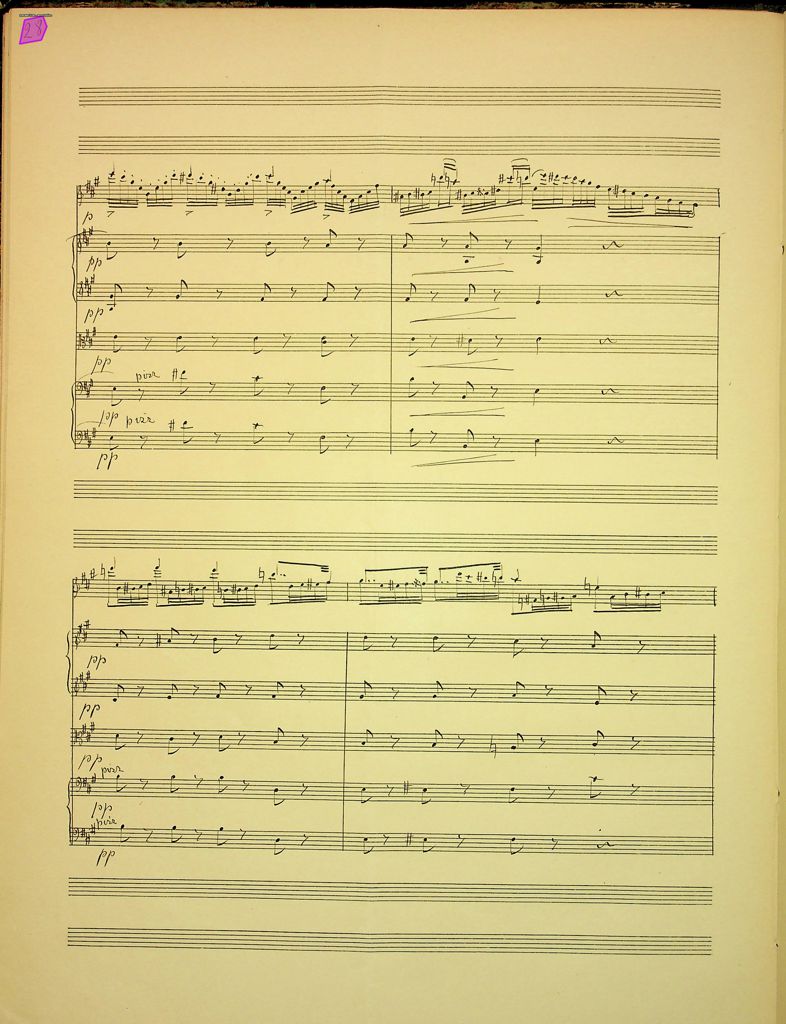 28
p
pp
pp
pp
pizz
pp pizz
pp
pp
pp
pp
pizz
pp
pizz
pp